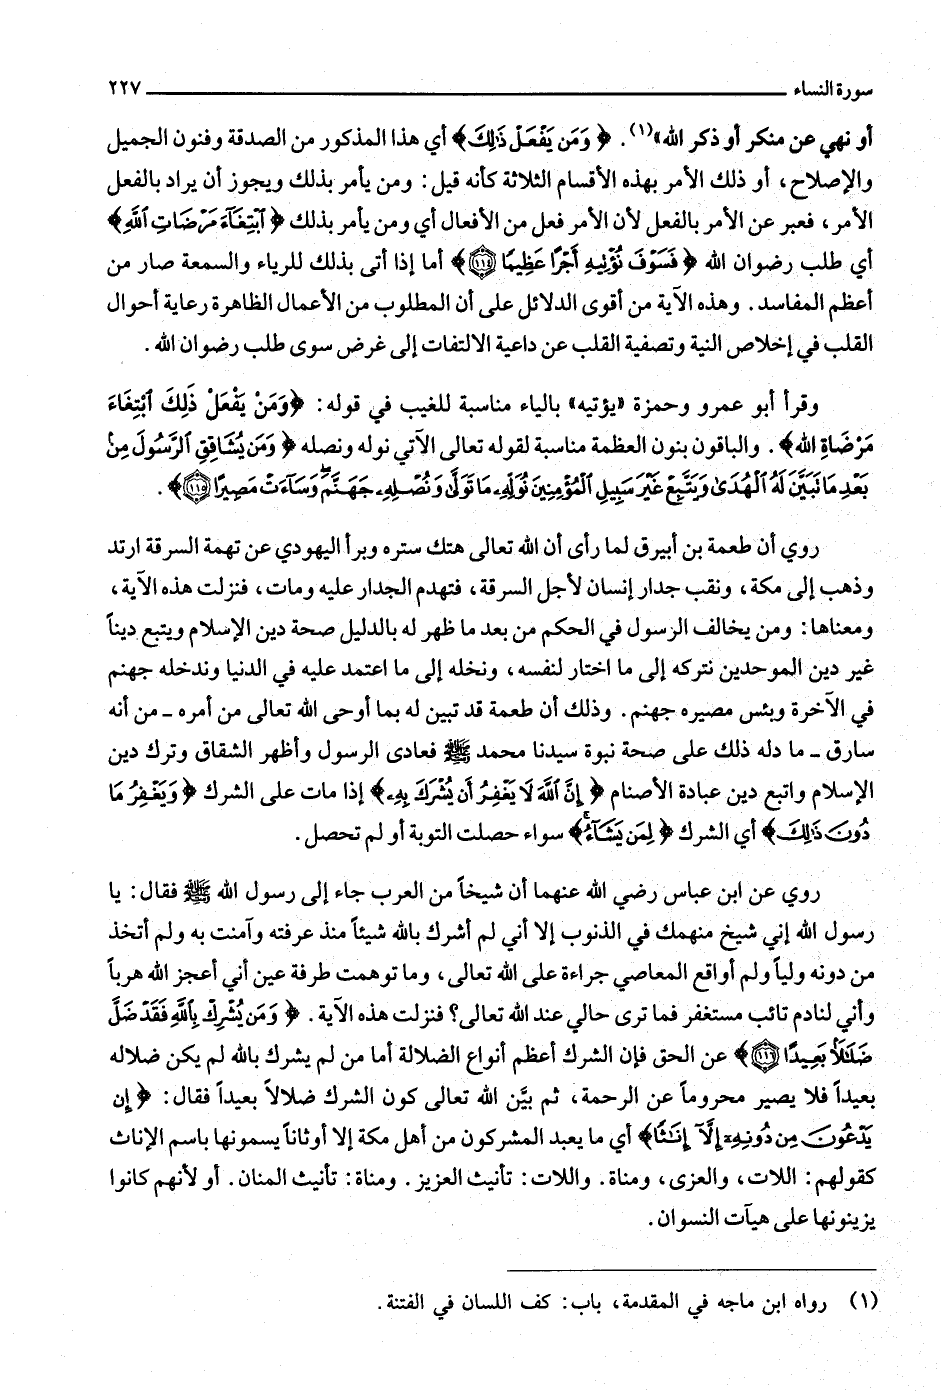 سورة النساء ٢٢٧
أو نهي عن منكر أو ذكر الله»(١). ﴿ وَمَن يَفْعَلْ ذَٰلِكَ﴾ أي هذا المذكور من الصدقة وفنون الجميل
والإصلاح، أو ذلك الأمر بهذه الأقسام الثلاثة كأنه قيل: ومن يأمر بذلك ويجوز أن يراد بالفعل
الأمر، فعبر عن الأمر بالفعل لأن الأمر فعل من الأفعال أي ومن يأمر بذلك ﴿ ٱبْتِغَآءَ مَرْضَاتِ ٱللَّهِ﴾
أي طلب رضوان الله ﴿ فَسَوْفَ نُؤْتِيهِ أَجْرًا عَظِيمًا ١١٤﴾ أما إذا أتى بذلك للرياء والسمعة صار من
أعظم المفاسد. وهذه الآية من أقوى الدلائل على أن المطلوب من الأعمال الظاهرة رعاية أحوال
القلب في إخلاص النية وتصفية القلب عن داعية الالتفات إلى غرض سوى طلب رضوان الله.
وقرأ أبو عمرو وحمزة «يؤتيه» بالياء مناسبة للغيب في قوله: ﴿وَمَنْ يَفْعَلْ ذَلِكَ ابْتِغَاءَ
مَرْضَاةِ الله﴾. والباقون بنون العظمة مناسبة لقوله تعالى الآتي نوله ونصله ﴿ وَمَن يُشَاقِقِ ٱلرَّسُولَ مِنۢ
بَعْدِ مَا تَبَيَّنَ لَهُ ٱلْهُدَىٰ وَيَتَّبِعْ غَيْرَ سَبِيلِ ٱلْمُؤْمِنِينَ نُوَلِّهِۦ مَا تَوَلَّىٰ وَنُصْلِهِۦ جَهَنَّمَۖ وَسَآءَتْ مَصِيرًا ١١٥﴾.
روي أن طعمة بن أبيرق لما رأى أن الله تعالى هتك ستره وبرأ اليهودي عن تهمة السرقة ارتد
وذهب إلى مكة، ونقب جدار إنسان لأجل السرقة، فتهدم الجدار عليه ومات، فنزلت هذه الآية،
ومعناها: ومن يخالف الرسول في الحكم من بعد ما ظهر له بالدليل صحة دين الإسلام ويتبع ديناً
غير دين الموحدين نتركه إلى ما اختار لنفسه، ونخله إلى ما اعتمد عليه في الدنيا وندخله جهنم
في الآخرة وبئس مصيره جهنم. وذلك أن طعمة قد تبين له بما أوحى الله تعالى من أمره ـ من أنه
سارق ـ ما دله ذلك على صحة نبوة سيدنا محمد ﷺ فعادى الرسول وأظهر الشقاق وترك دين
الإسلام واتبع دين عبادة الأصنام ﴿ إِنَّ ٱللَّهَ لَا يَغْفِرُ أَن يُشْرَكَ بِهِۦ﴾ إذا مات على الشرك ﴿ وَيَغْفِرُ مَا
دُونَ ذَٰلِكَ﴾ أي الشرك ﴿ لِمَن يَشَآءُۚ﴾ سواء حصلت التوبة أو لم تحصل.
روي عن ابن عباس رضي الله عنهما أن شيخاً من العرب جاء إلى رسول الله ﷺ فقال: يا
رسول الله إني شيخ منهمك في الذنوب إلا أني لم أشرك بالله شيئاً منذ عرفته وآمنت به ولم أتخذ
من دونه ولياً ولم أواقع المعاصي جراءة على الله تعالى، وما توهمت طرفة عين أني أعجز الله هرباً
وأني لنادم تائب مستغفر فما ترى حالي عند الله تعالى؟ فنزلت هذه الآية. ﴿ وَمَن يُشْرِكْ بِٱللَّهِ فَقَدْ ضَلَّ
ضَلَٰلَۢا بَعِيدًا ١١٦﴾ عن الحق فإن الشرك أعظم أنواع الضلالة أما من لم يشرك بالله لم يكن ضلاله
بعيداً فلا يصير محروماً عن الرحمة، ثم بيَّن الله تعالى كون الشرك ضلالاً بعيداً فقال: ﴿ إِن
يَدْعُونَ مِن دُونِهِۦٓ إِلَّآ إِنَٰثًا﴾ أي ما يعبد المشركون من أهل مكة إلا أوثاناً يسمونها باسم الإناث
كقولهم: اللات، والعزى، ومناة. واللات: تأنيث العزيز. ومناة: تأنيث المنان. أو لأنهم كانوا
يزينونها على هيآت النسوان.
(١) رواه ابن ماجه في المقدمة، باب: كف اللسان في الفتنة.